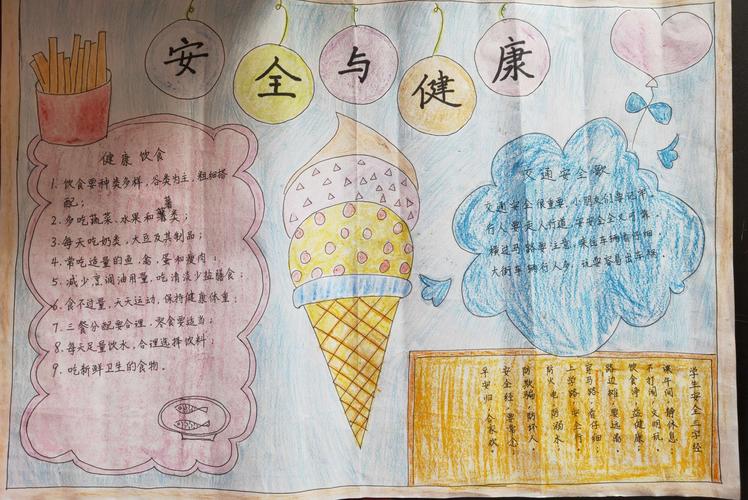 安全与健康
健康饮食
1. 饮食要种类多样，谷类为主，粗细搭
配；
2. 多吃蔬菜、水果和薯类；
3. 每天吃奶类、大豆及其制品；
4. 常吃适量的鱼、禽、蛋和瘦肉；
5. 减少烹调油用量，吃清淡少盐膳食；
6. 食不过量，天天运动，保持健康体重；
7. 三餐分配要合理，零食要适当；
8. 每天足量饮水，合理选择饮料；
9. 吃新鲜卫生的食物。
交通安全歌
交通安全很重要，小朋友们牢记
行人要走人行道，安安全全又可靠
横过马路要注意，来往车辆看仔细
大街车辆行人多，玩耍容易出车祸。
学生安全三字经
课午间，静休息，
不打闹，文明玩，
饮食净，益健康，
路边摊，要远离，
穿马路，看仔细，
上学路，安全行，
防火电，防溺水，
防欺骗，防坏人，
安全经，要常念，
早安归，合家欢。